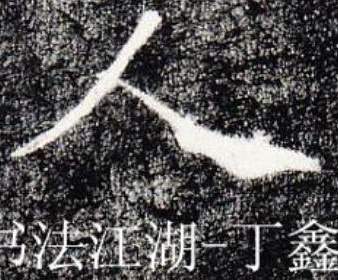 人
书法江湖-丁鑫